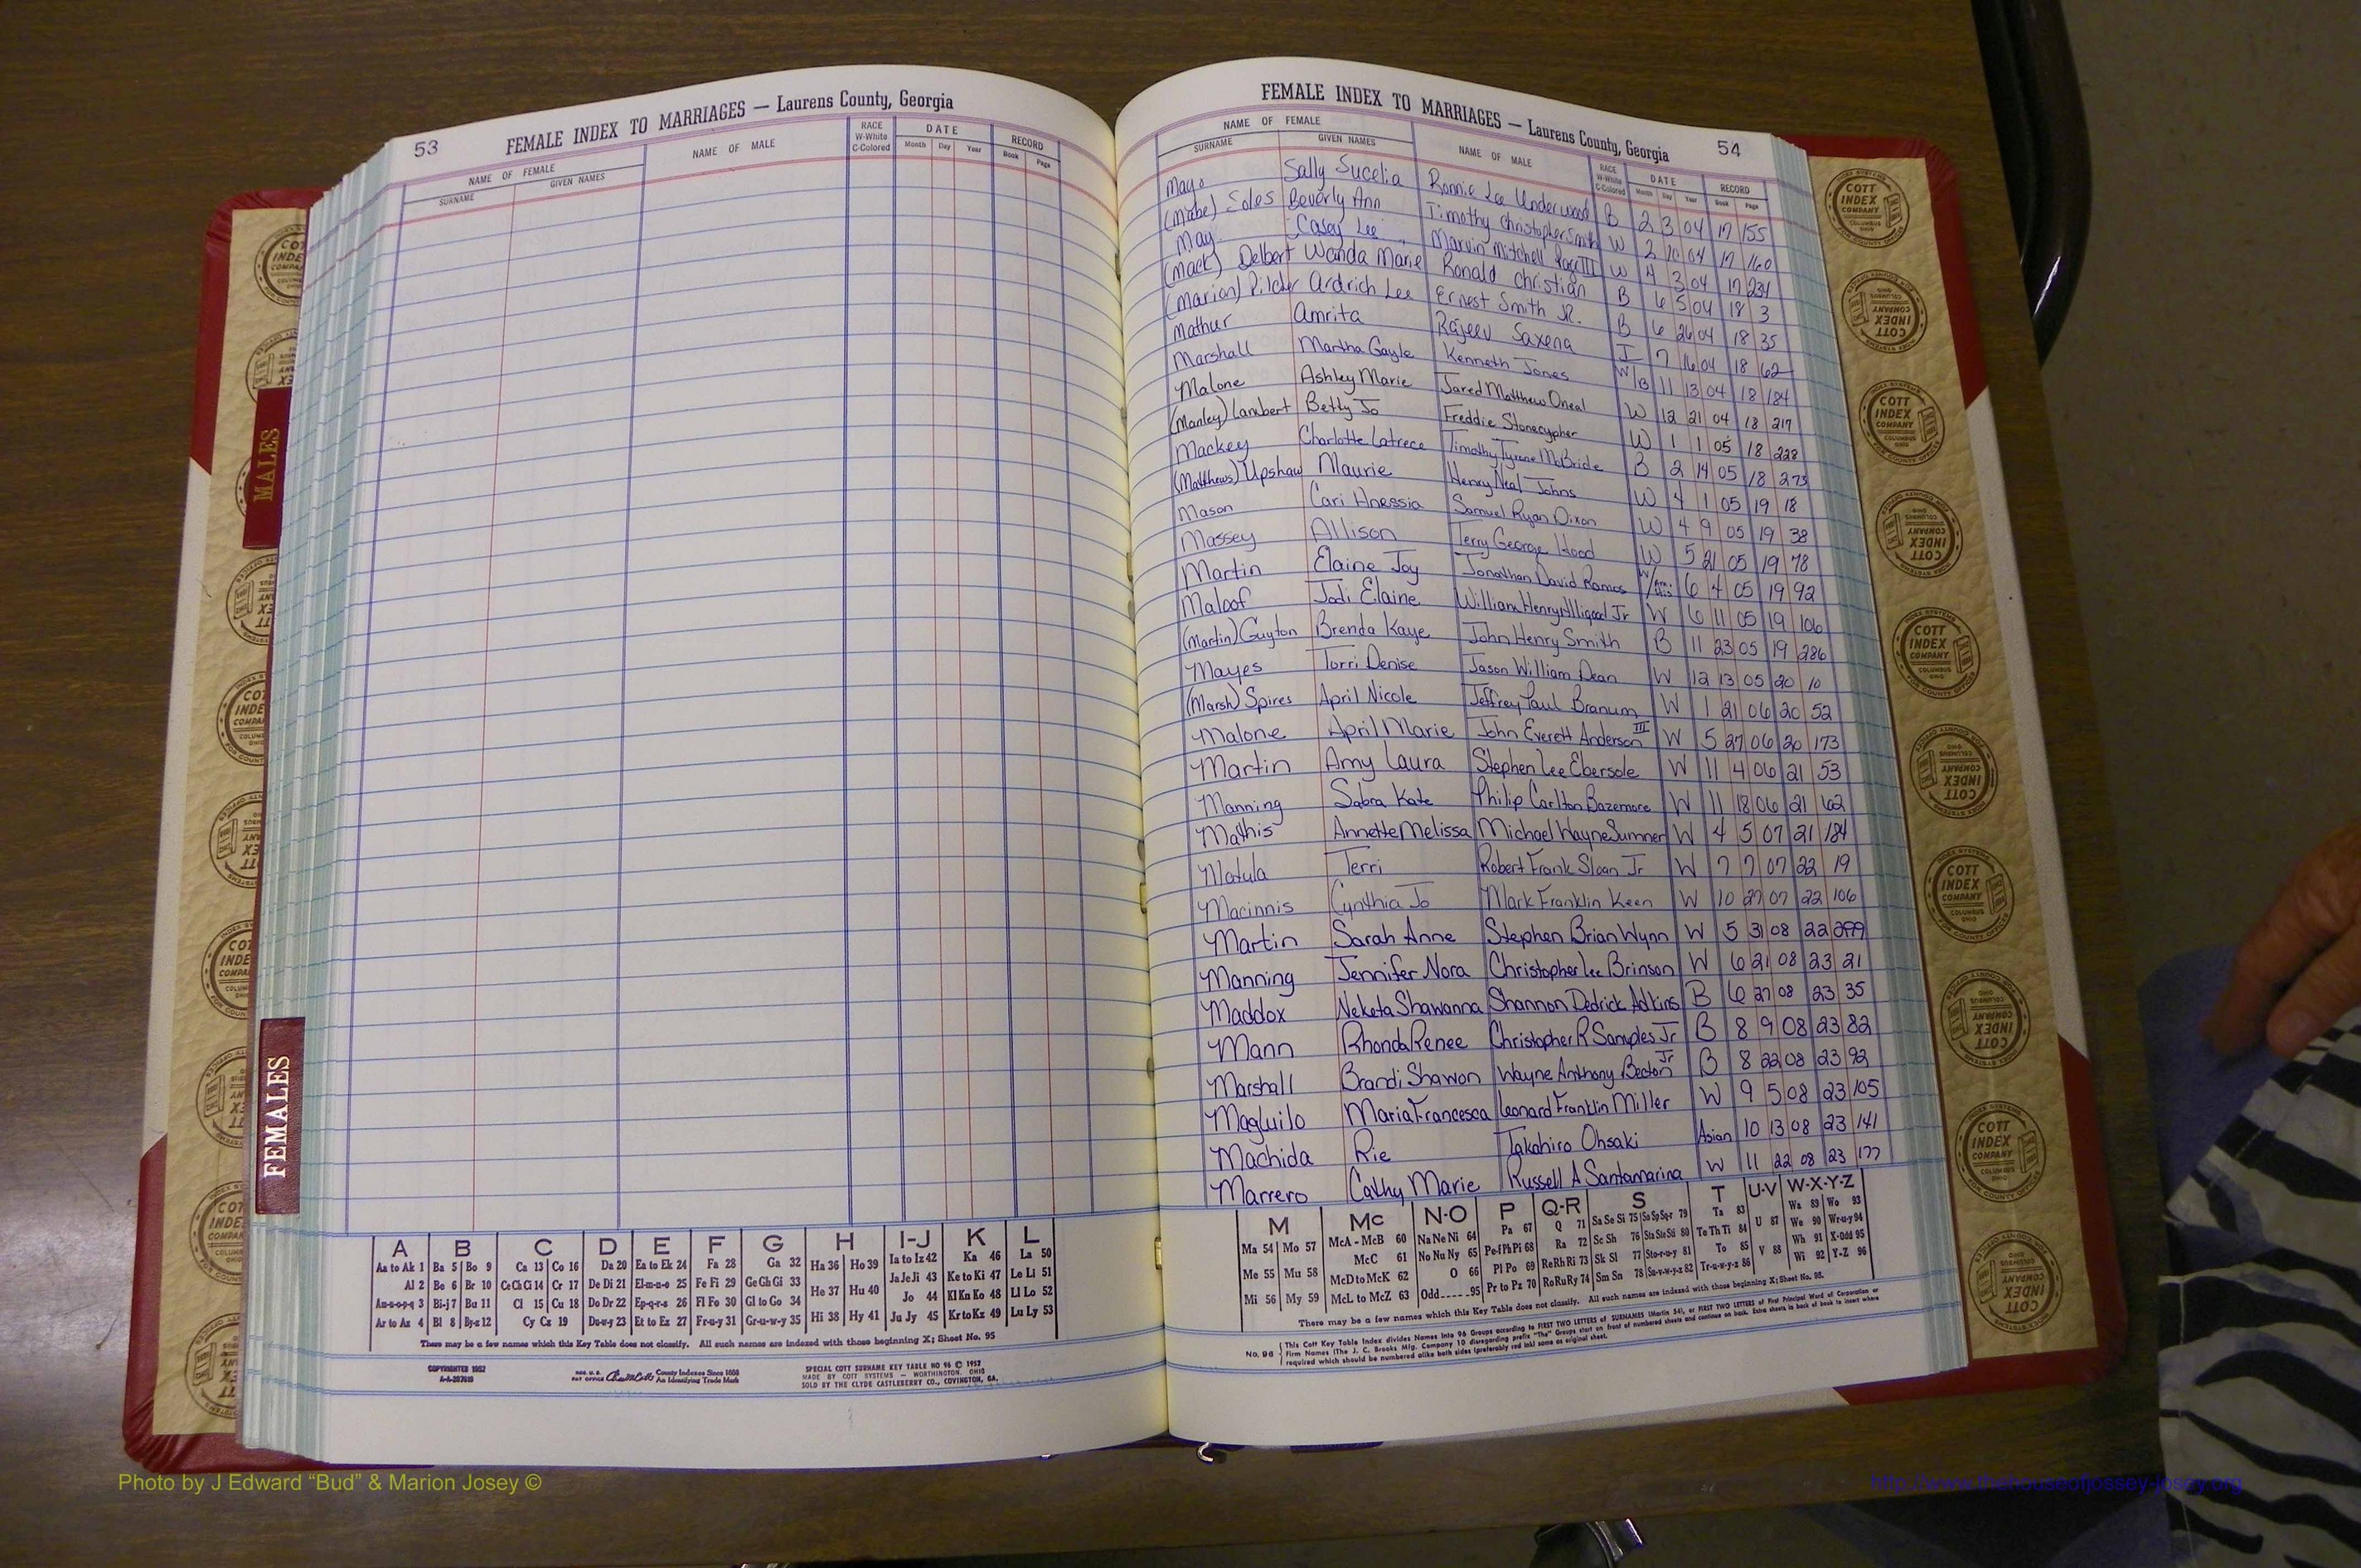 53
FEMALE INDEX TO MARRIAGES — Laurens County, Georgia
NAME OF FEMALE
SURNAME GIVEN NAMES
NAME OF MALE
RACE
W-White
C-Colored
DATE
Month Day Year
RECORD
Book Page
MALES
FEMALES
A B C D E F G H I-J K L
Aa to Ak 1 Ba 5 Bo 9 Ca 13 Co 16 Da 20 Ea to Ek 24 Fa 28 Ga 32 Ha 36 Ho 39 Ia to Iz 42 Ka 46 La 50
Al 2 Be 6 Br 10 Ce Ch Ci 14 Cr 17 De Di 21 El-m-n-o 25 Fe Fi 29 Ge Gh Gi 33 He 37 Hu 40 Ja Je Ji 43 Ke to Ki 47 Le Li 51
Am-n-o-p-q 3 Bi-j 7 Bu 11 Cl 15 Cu 18 Do Dr 22 Ep-q-r-s 26 Fl Fo 30 Gl to Go 34 Hi 38 Hy 41 Jo 44 Kl Kn Ko 48 Ll Lo 52
Ar to Az 4 Bl 8 By-z 12 Cy Cz 19 Du-w-y 23 Et to Ez 27 Fr-u-y 31 Gr-u-w-y 35 Ju Jy 45 Kr to Kz 49 Lu Ly 53
There may be a few names which this Key Table does not classify. All such names are indexed with those beginning X; Sheet No. 95
COPYRIGHTED 1952
REG. U. S. PAT OFFICE County Indexes Since 1888
An Identifying Trade Mark
SPECIAL COTT SURNAME KEY TABLE NO 96 © 1952
MADE BY COTT SYSTEMS — WORTHINGTON, OHIO
SOLD BY THE CLYDE CASTLEBERRY CO., COVINGTON, GA.
FEMALE INDEX TO MARRIAGES — Laurens County, Georgia
54
NAME OF FEMALE
SURNAME GIVEN NAMES
NAME OF MALE
RACE
W-White
C-Colored
DATE
Month Day Year
RECORD
Book Page
Mayo Sally Sucelia Ronnie Lee Underwood B 2 3 04 17 155
(Mabe) Soles Beverly Ann Timothy Christopher Smith W 2 10 04 17 160
May Casey Lee Marvin Mitchell Page III W 4 3 04 17 234
(Mack) Delbert Wanda Marie Ronald Christian B 6 5 04 18 3
(Marion) Pilcher Ardrich Lee Ernest Smith JR. B 6 26 04 18 35
Mathur Amrita Rajeev Saxena I 7 16 04 18 62
Marshall Martha Gayle Kenneth Jones W/B 11 13 04 18 184
Malone Ashley Marie Jared Matthew Oneal W 12 21 04 18 217
(Manley) Lambert Betty Jo Freddie Stonecypher W 1 1 05 18 228
Mackey Charlotte Latrece Timothy Tyrone McBride B 2 14 05 18 273
(Matthews) Upshaw Maurie Henry Neal Johns W 4 1 05 19 18
Mason Cari Hnessia Samuel Ryan Dixon W 4 9 05 19 38
Massey Allison Terry George Hood W 5 21 05 19 78
Martin Elaine Joy Jonathan David Ramos 6 4 05 19 92
Maloof Jodi Elaine William Henry Alligood Jr W 6 11 05 19 106
(Martin) Guyton Brenda Kaye John Henry Smith B 11 23 05 19 286
Mayes Torri Denise Jason William Dean W 12 13 05 20 10
(Marsh) Spires April Nicole Jeffrey Paul Branum W 1 21 06 20 52
Malone April Marie John Everett Anderson III W 5 27 06 20 173
Martin Amy Laura Stephen Lee Ebersole W 11 4 06 21 53
Manning Sabra Kate Philip Carlton Bazemore W 11 18 06 21 62
Mathis Annette Melissa Michael Wayne Sumner W 4 5 07 21 184
Matula Terri Robert Frank Sloan Jr W 7 7 07 22 19
Macinnis Cynthia Jo Mark Franklin Keen W 10 27 07 22 106
Martin Sarah Anne Stephen Brian Wynn W 5 31 08 22 299
Manning Jennifer Nora Christopher Lee Brinson W 6 21 08 23 21
Maddox Neketa Shawanna Shannon Dedrick Adkins B 6 27 08 23 35
Mann Rhonda Renee Christopher R Samples Jr B 8 9 08 23 82
Marshall Brandi Shawon Wayne Anthony Becton Jr B 8 22 08 23 92
Magluilo Maria Francesca Leonard Franklin Miller W 9 5 08 23 105
Machida Rie Takahiro Ohsaki Asian 10 13 08 23 141
Marrero Cathy Marie Russell A Santamarina W 11 22 08 23 177
M Mc N-O P Q-R S T U-V W-X-Y-Z
Ma 54 Mo 57 McA - McB 60 Na Ne Ni 64 Pa 67 Q 71 Sa Se Si 75 So Sp Sq-r 79 Ta 83 U 87 Wa 89 Wo 93
Me 55 Mu 58 McC 61 No Nu Ny 65 Pe-f Ph Pi 68 Ra 72 Sc Sh 76 Sta Ste Sti 80 Te Th Ti 84 V 88 We 90 Wr-u-y 94
Mi 56 My 59 McD to McK 62 O 66 Pl Po 69 Re Rh Ri 73 Sk Sl 77 Sto-r-u-y 81 To 85 Wh 91 X-Odd 95
McL to McZ 63 Odd 95 Pr to Pz 70 Ro Ru Ry 74 Sm Sn 78 Su-v-w-y-z 82 Tr-u-w-y-z 86 Wi 92 Y-Z 96
There may be a few names which this Key Table does not classify. All such names are indexed with those beginning X; Sheet No. 95.
No. 96 This Cott Key Table Index divides Names into 96 Groups according to FIRST TWO LETTERS of SURNAMES (Martin 54), or FIRST TWO LETTERS of First Principal Word of Corporation or
Firm Names (The J. C. Brooks Mfg. Company 10 disregarding prefix "The" Groups start on front of numbered sheets and continue on back. Extra sheets in back of book to insert where
required which should be numbered alike both sides (preferably red ink) same as original sheet.
COTT INDEX COMPANY COLUMBUS OHIO
INDEX SYSTEMS FOR COUNTY OFFICES
Photo by J Edward “Bud” & Marion Josey ©
http://www.thehouseofjossey-josey.org